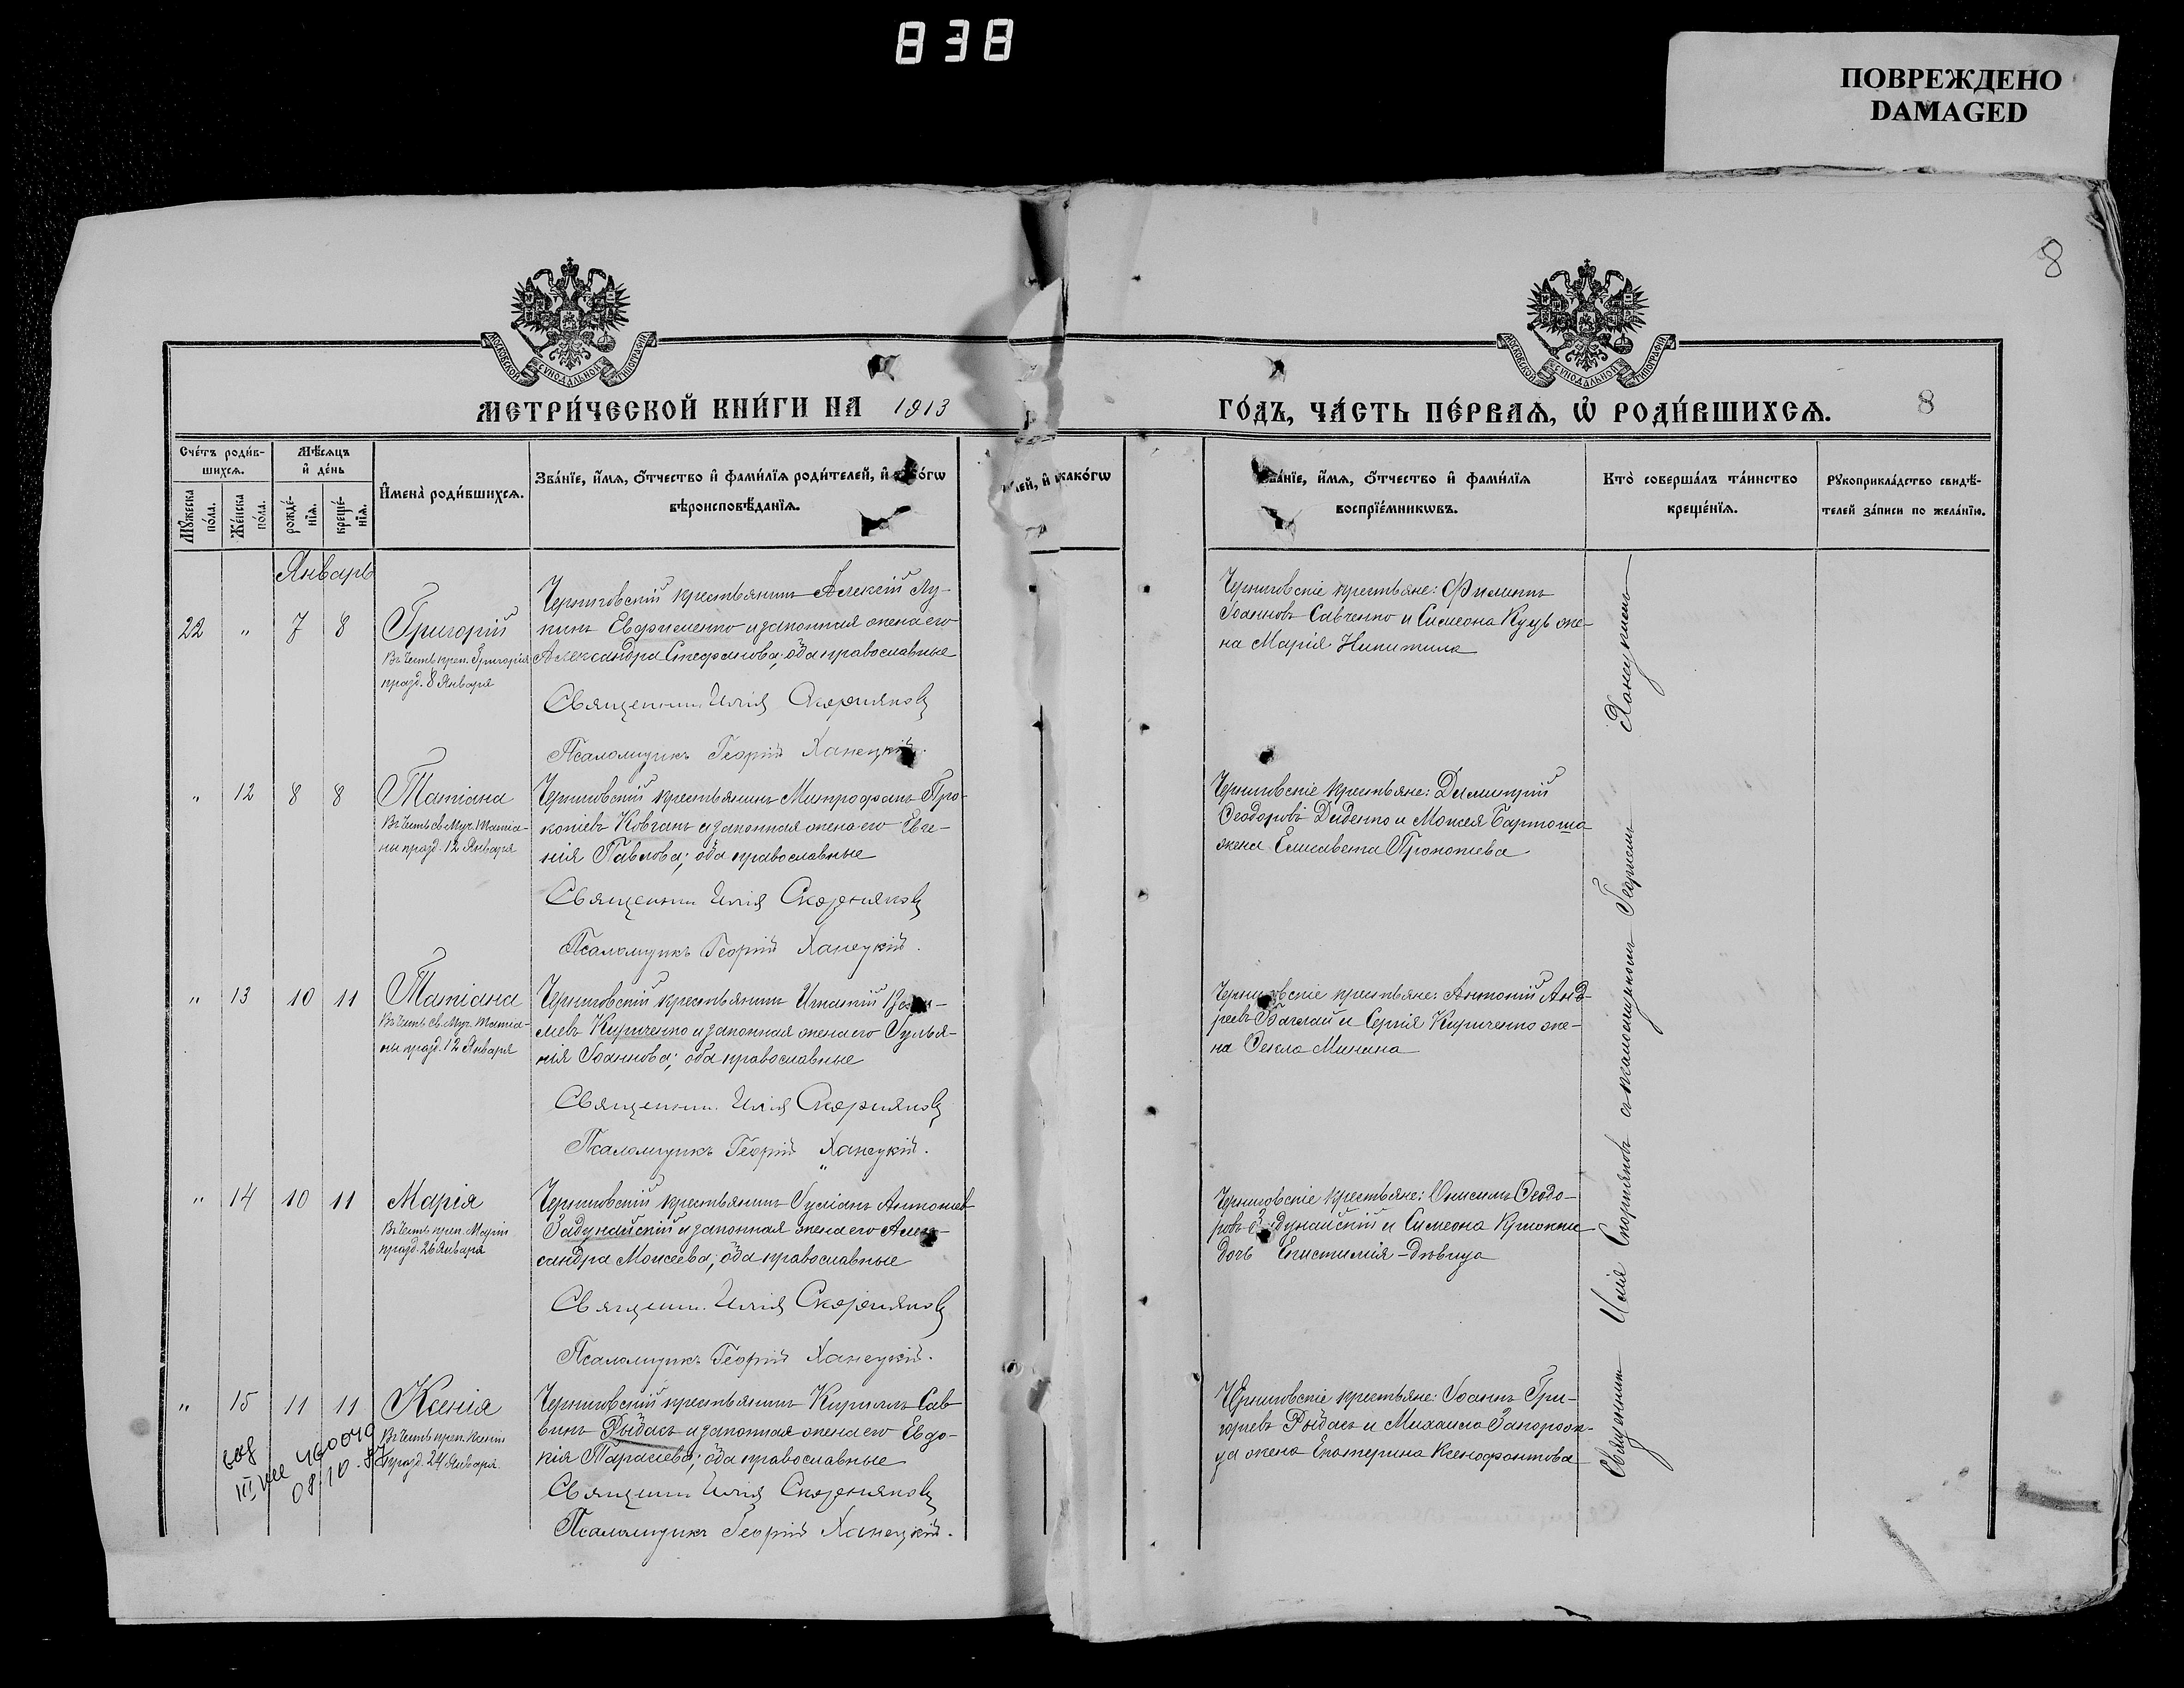 838
ПОВРЕЖДЕНО
DAMAGED
8
МОСКОВСКОЙ СѴНОДАЛЬНОЙ ТИПОГРАФІИ
МОСКОВСКОЙ СѴНОДАЛЬНОЙ ТИПОГРАФІИ
МЕТРИ́ЧЕСКОЙ КНИ́ГИ НА 1913
ГО́ДЪ, ЧА́СТЬ ПЕ́РВАѦ, Ѡ҆ РОДИ́ВШИХСѦ. 8
Сче́тъ роди́в-
шихсѧ.
Мꙋ́жеска по́ла.
Же́нска по́ла.
Мѣ́сѧцъ
и҆ де́нь
рожде́-
нїѧ.
креще́-
нїѧ.
И҆мена̀ роди́вшихсѧ.
Зва́нїе, и҆́мѧ, ѻ҆́тчество и҆ фами́лїѧ роди́телей, и҆ како́гѡ
вѣроисповѣ́данїѧ.
лей, и҆ како́гѡ
Зва́нїе, и҆́мѧ, ѻ҆́тчество и҆ фами́лїѧ
воспрїе́мникѡвъ.
Кто̀ соверша́лъ та́инство
креще́нїѧ.
Рꙋкоприкла́дство свидѣ́-
телей за́писи по жела́нїю.
Январь
22 " 7 8 Григорій
Въ честь преп. Григорія
празд. 8 Января
Черниговскій крестьянинъ Алексій Лу-
кинъ Евфименко и законная жена его
Александра Стефанова; оба православные
Священникъ Илія Скорняковъ
Псаломщикъ Георгій Ханецкій.
Черниговскіе крестьяне: Филиппъ
Іоанновъ Савченко и Симеона Куць же-
на Марія Никитина
" 12 8 8 Татіана
Въ честь св. Муч. Татіа-
ны празд. 12 Января
Черниговскій крестьянинъ Митрофанъ Про-
копіевъ Ковганъ и законная жена его Евге-
нія Павлова; оба православные
Священникъ Илія Скорняковъ
Псаломщикъ Георгій Ханецкій.
Черниговскіе крестьяне: Димитрій
Ѳеодоровъ Диденко и Моисея Бартоша
жена Елисавета Прокопіева
" 13 10 11 Татіана
Въ честь св. Муч. Татіа-
ны празд. 12 Января
Черниговскій крестьянинъ Игнатій
Кириченко и законная жена его Іульа-
нія Іоаннова; оба православные
Священник. Илія Скорняковъ
Псаломщикъ Георгій Ханецкій.
Черниговскіе крестьяне: Антоній Анд-
реевъ Баглай и Сергія Кириченко же-
на Ѳекла Минина
" 14 10 11 Марія
Въ честь преп. Маріи
празд. 26 Января
Черниговскій крестьянинъ Антоніев
Задунайскій и законная жена его Алек-
сандра Моисеева; оба православные
Священн. Илія Скорняковъ
Псаломщикъ Георгій Ханецкій.
Черниговскіе крестьяне: Онисимъ Ѳеодо-
ровъ Задунайскій и Симеона
дочь Епистимія - дѣвица
" 15 11 11 Ксенія
Въ честь преп. Ксеніи
празд. 24 Января.
Черниговскій крестьянинъ Кириллъ Сав-
винъ Рыбась и законная жена его Евдо-
кія; оба православные
Священник Илія Скорняковъ
Псаломщикъ Георгій Ханецкій.
Черниговскіе крестьяне: Іоаннъ Гри-
горіевъ Рыбась и Михаила Запорож-
ца жена Екатерина Ксенофонтова
460049
Священникъ Илія Скорняковъ съ псаломщикомъ Георгіемъ Ханецкимъ